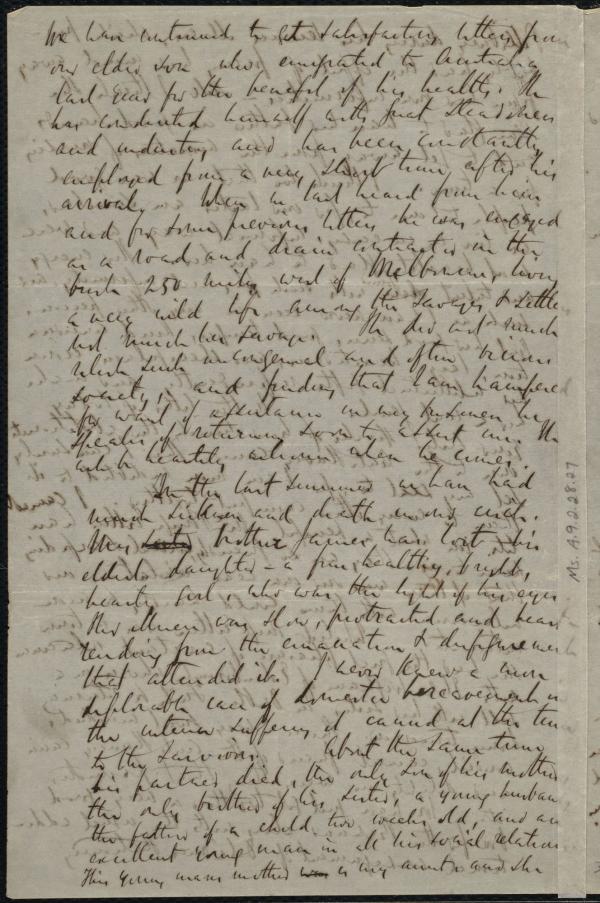 We have continued to get satisfactory letters from
our elder son who emigrated to Australia
last year for the benefit of his health. He
has conducted himself with great steadiness
and industry and has been constantly
employed from a very short time after his
arrival. When we last heard from him
and for some previous letters he was engaged
as a road and drain contractor in the
bush 250 miles west of Melbourne, living
a very wild life among the savages & settlers
not much less savage. He did not much
relish such uncongenial and often vicious
society, and finding that I am hampered
for want of assistance in my business he
speaks of returning soon to assist me. He
will be heartily welcome when he comes.
In the last summer we have had
much sickness and death in our circle.
My brother James has lost his
eldest daughter - a fine healthy, bright,
hearty girl, who was the light of his eyes
Her illness was slow, protracted and heart
rending from the emaciation & disfigurement
that attended it. I never knew a more
deplorable case of domestic bereavement or
the intense suffering it caused at the time
to the survivors. About the same time
his partner died, the only son of his mother
the only brother of his sister, a young husband
the father of a child two weeks old, and an
excellent young man in all his social relations
This young man's mother is my aunt and she
Ms. A.9.2.28.27